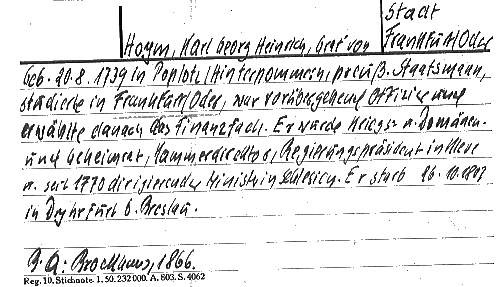 Stadt
Hoym, Karl Georg Heinrich, Graf von Frankfurt/Oder
Geb. 20.8.1739 in Poplotz/Hinterpommern, preuß. Staatsmann,
studierte in Frankfurt/Oder, war vorübergehend Offizier und
erwählte danach das Finanzfach. Er wurde Kriegs- u. Domänen-
und Geheimrat, Kammerdirektor, Regierungspräsident in Kleve
u. seit 1770 dirigierender Minister in Schlesien. Er starb 26.10.1807
in Dyhrnfurt b. Breslau.
B. A.: Brockhaus, 1866.
Reg. 10. Stichnote. 1. 50. 232 000. A. 803. S. 4062